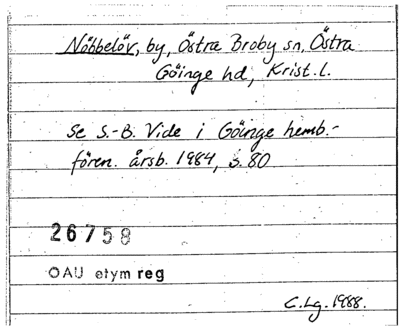 Nöbbelöv, by, Östra Broby sn, Östra
Göinge hd, Krist. l.
Se S.-B. Vide i Göinge hemb.-
fören. årsb. 1984, s. 80
26758
OAU etym reg
C. Lg. 1988.